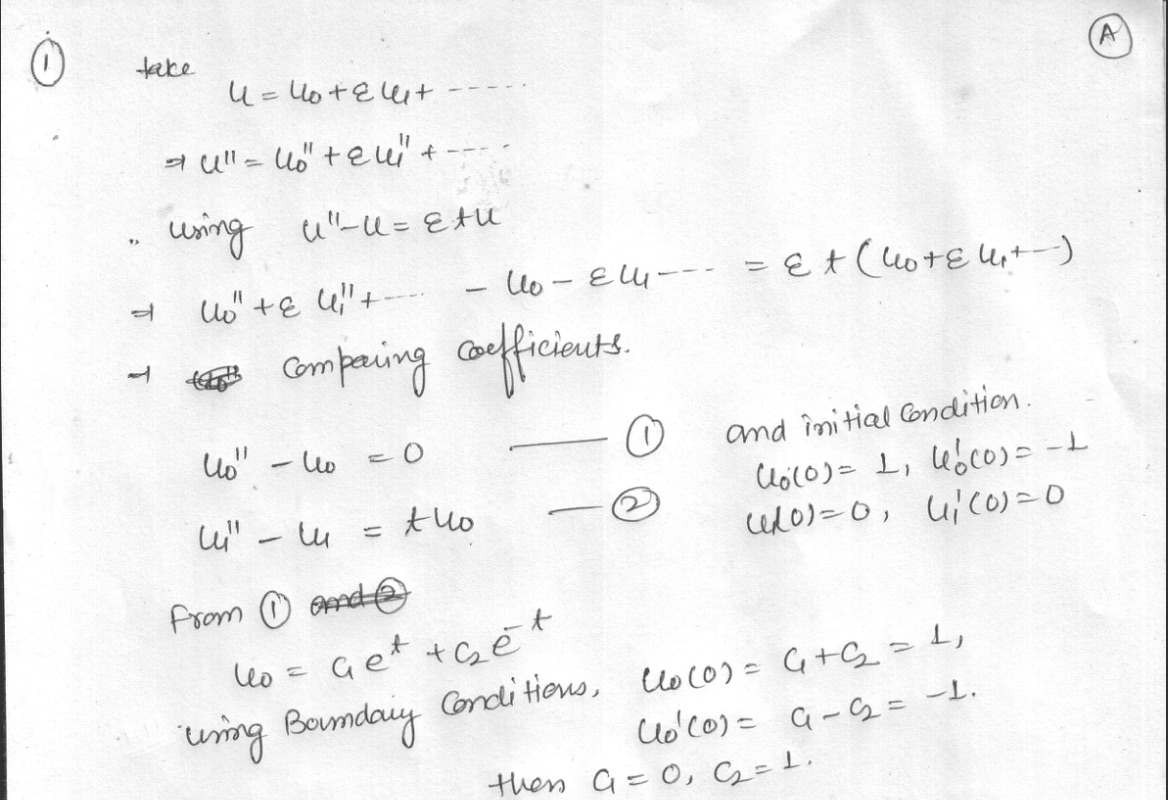 ① take Ⓐ
u = u₀ + εu₁ + ------
⇒ u'' = u₀'' + εu₁'' + -----
using u'' - u = εtu
⇒ u₀'' + εu₁'' + ---- - u₀ - εu₁ --- = εt(u₀ + εu₁ + ---)
⇒ Comparing coefficients.
u₀'' - u₀ = 0 —— ① and initial Condition.
u₀(0) = 1, u₀'(0) = -1
u₁'' - u₁ = tu₀ —— ② u₁(0) = 0, u₁'(0) = 0
from ① and ②
u₀ = c₁e^t + c₂e^-t
using Boundary Conditions, u₀(0) = c₁ + c₂ = 1,
u₀'(0) = c₁ - c₂ = -1.
then c₁ = 0, c₂ = 1.